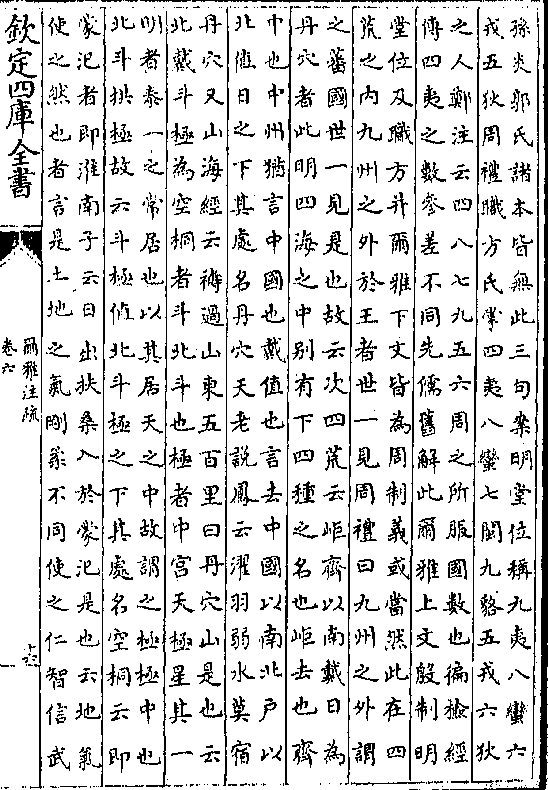 孫炎郭氏諸本皆無此三句案明堂位稱九夷八蠻六
戎五狄周禮職方氏掌四夷八蠻七閩九貉五戎六狄
之人鄭注云四八七九五六周之所服國數也徧檢經
傳四夷之數參差不同先儒舊解此爾雅上文殷制明
堂位及職方并爾雅下文皆為周制義或當然此在四
荒之内九州之外於王者世一見周禮曰九州之外謂
之蕃國世一見是也故云次四荒云岠齊以南戴日為
丹穴者此明四海之中別有下四種之名也岠去也齊
中也中州猶言中國也戴值也言去中國以南北户以
北值日之下其處名丹穴天老説鳳云濯羽弱水莫宿
丹穴又山海經云禱過山東五百里曰丹穴山是也云
北戴斗極為空桐者斗北斗也極者中宫天極星其一
明者泰一之常居也以其居天之中故謂之極極中也
北斗拱極故云斗極值北斗極之下其處名空桐云即
蒙汜者即淮南子云日出扶桑入於蒙汜是也云地氣
使之然也者言是土地之氣剛柔不同使之仁智信武
欽定四庫全書
爾雅注疏
卷六
十六